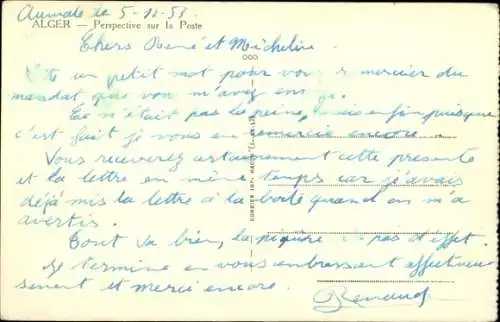 Aumale le 5-12-53
ALGER — Perspective sur la Poste
Chers René et Micheline
un petit mot pour vous remercier du
mandat que vous m'avez
Ce n'était pas la peine, mais enfin puisque
c'est fait je vous en remercie encore.
Vous receverez certainement cette présente
et la lettre en même temps car j'avais
déjà mis la lettre à la boîte quand on m'a
avertis.
Tout va bien, la piqûre pas d'effet.
Je termine en vous embrassant affectueu
sement et merci encore.
Renaud